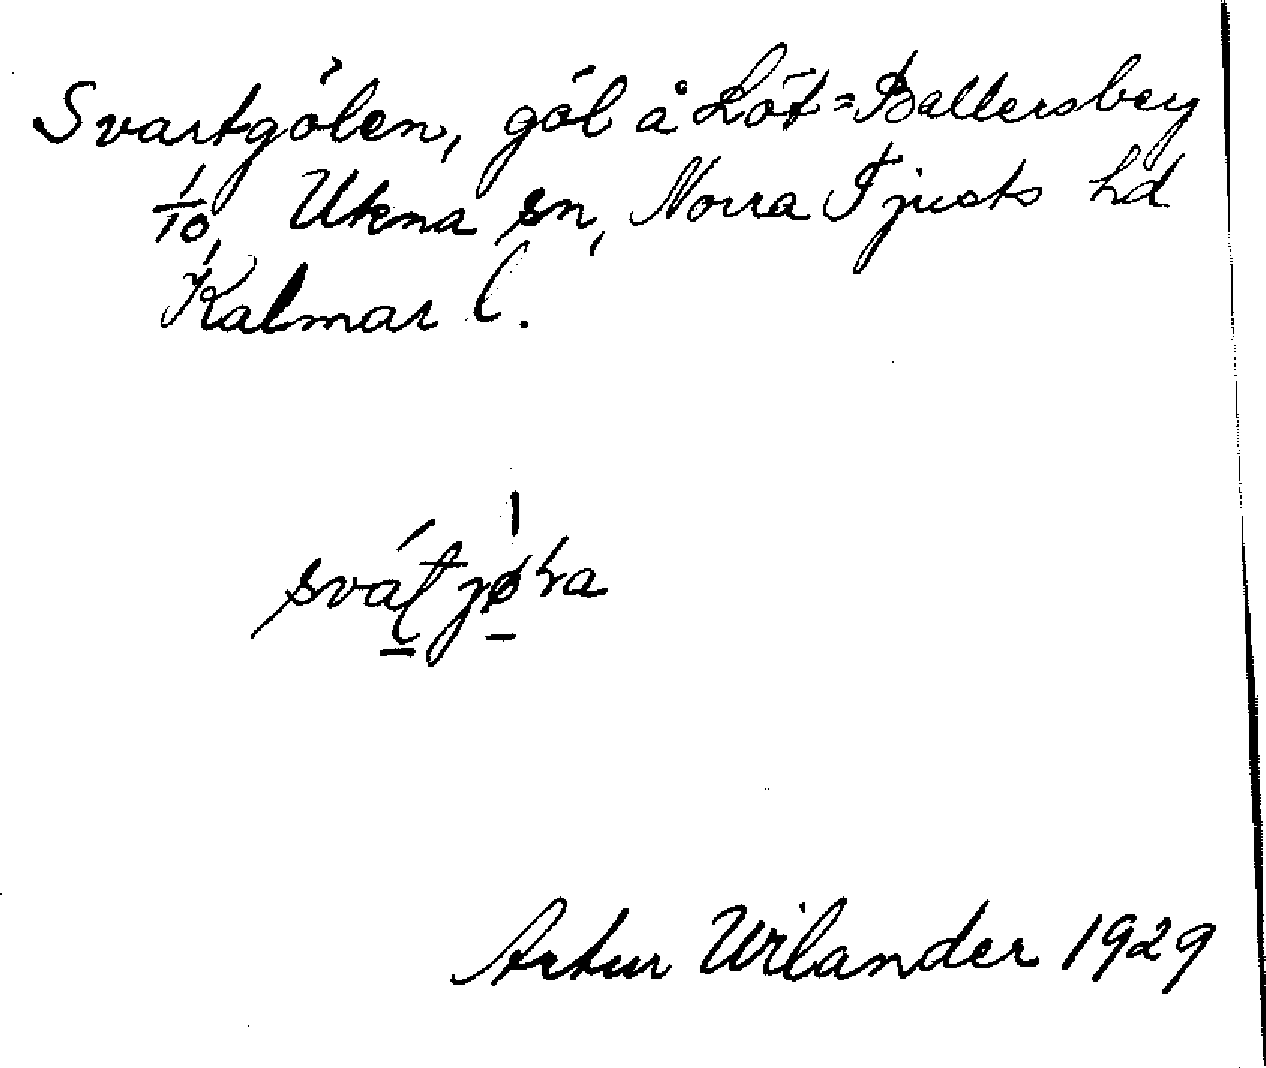 Svartgölen, göl å Löt=Ballersberg
1/10, Ukna sn, Norra Tjusts hd
Kalmar l.
Artur Wilander 1929